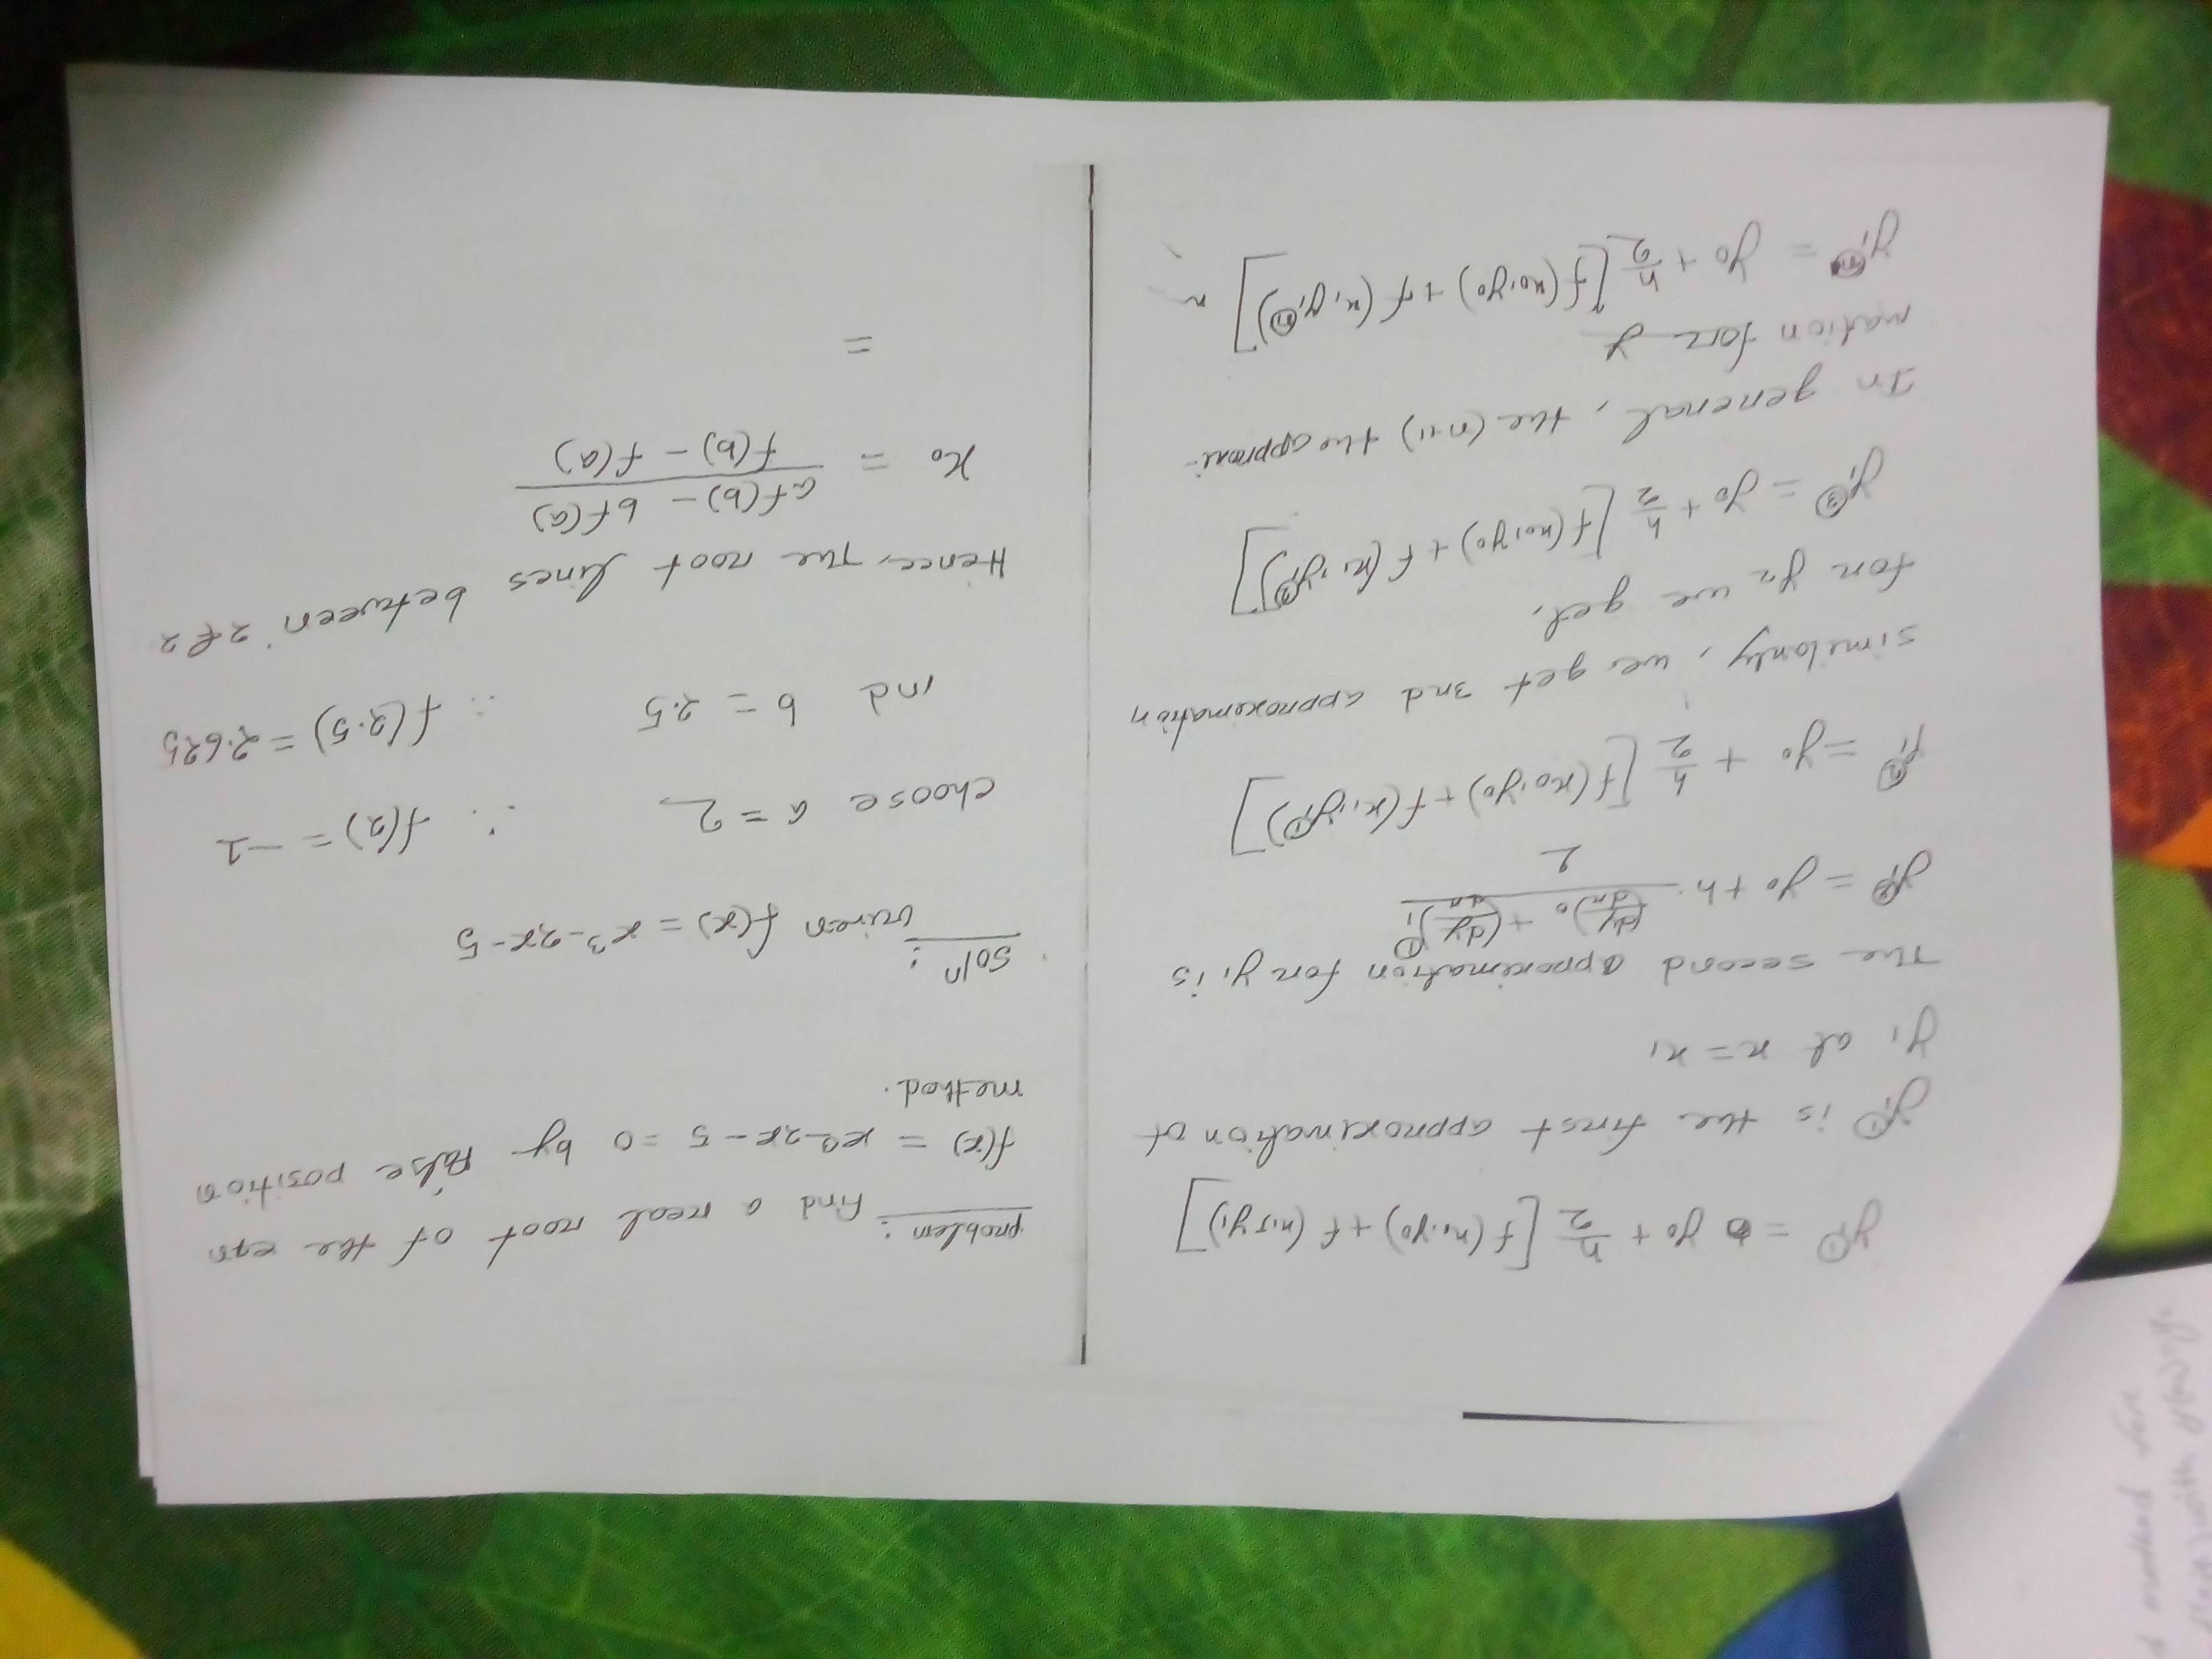 y₁^① = y₀ + h/2 [f(x₀,y₀) + f(x₁, y₁)]
y₁^① is the first approximation of
y₁ at x = x₁
The second approximation for y₁ is
y₁^② = y₀ + h · ((dy/dx)₀ + (dy/dx)₁^①)/2
y₁^② = y₀ + h/2 [f(x₀,y₀) + f(x₁,y₁^①)]
similarly, we get 3nd approximation
for y₂ we get,
y₁^③ = y₀ + h/2 [f(x₀,y₀) + f(x₁,y₁^②)]
In general, the (n+1) the approxi-
mation for y
= y₀ + h/2 [f(x₀,y₀) + f(x₁ y₁^ⓝ)]
problem :
find a real root of the eqn
f(x) = x³-2x-5 =0 by False position
method.
soln :
Given f(x) = x³-2x-5
choose a = 2 ∴ f(2) = -1
and b = 2.5 ∴ f(2.5) = 2.625
Hence, The root lines between 2 & 2
x₀ = (af(b) - bf(a))/(f(b) - f(a))
=
method for
with